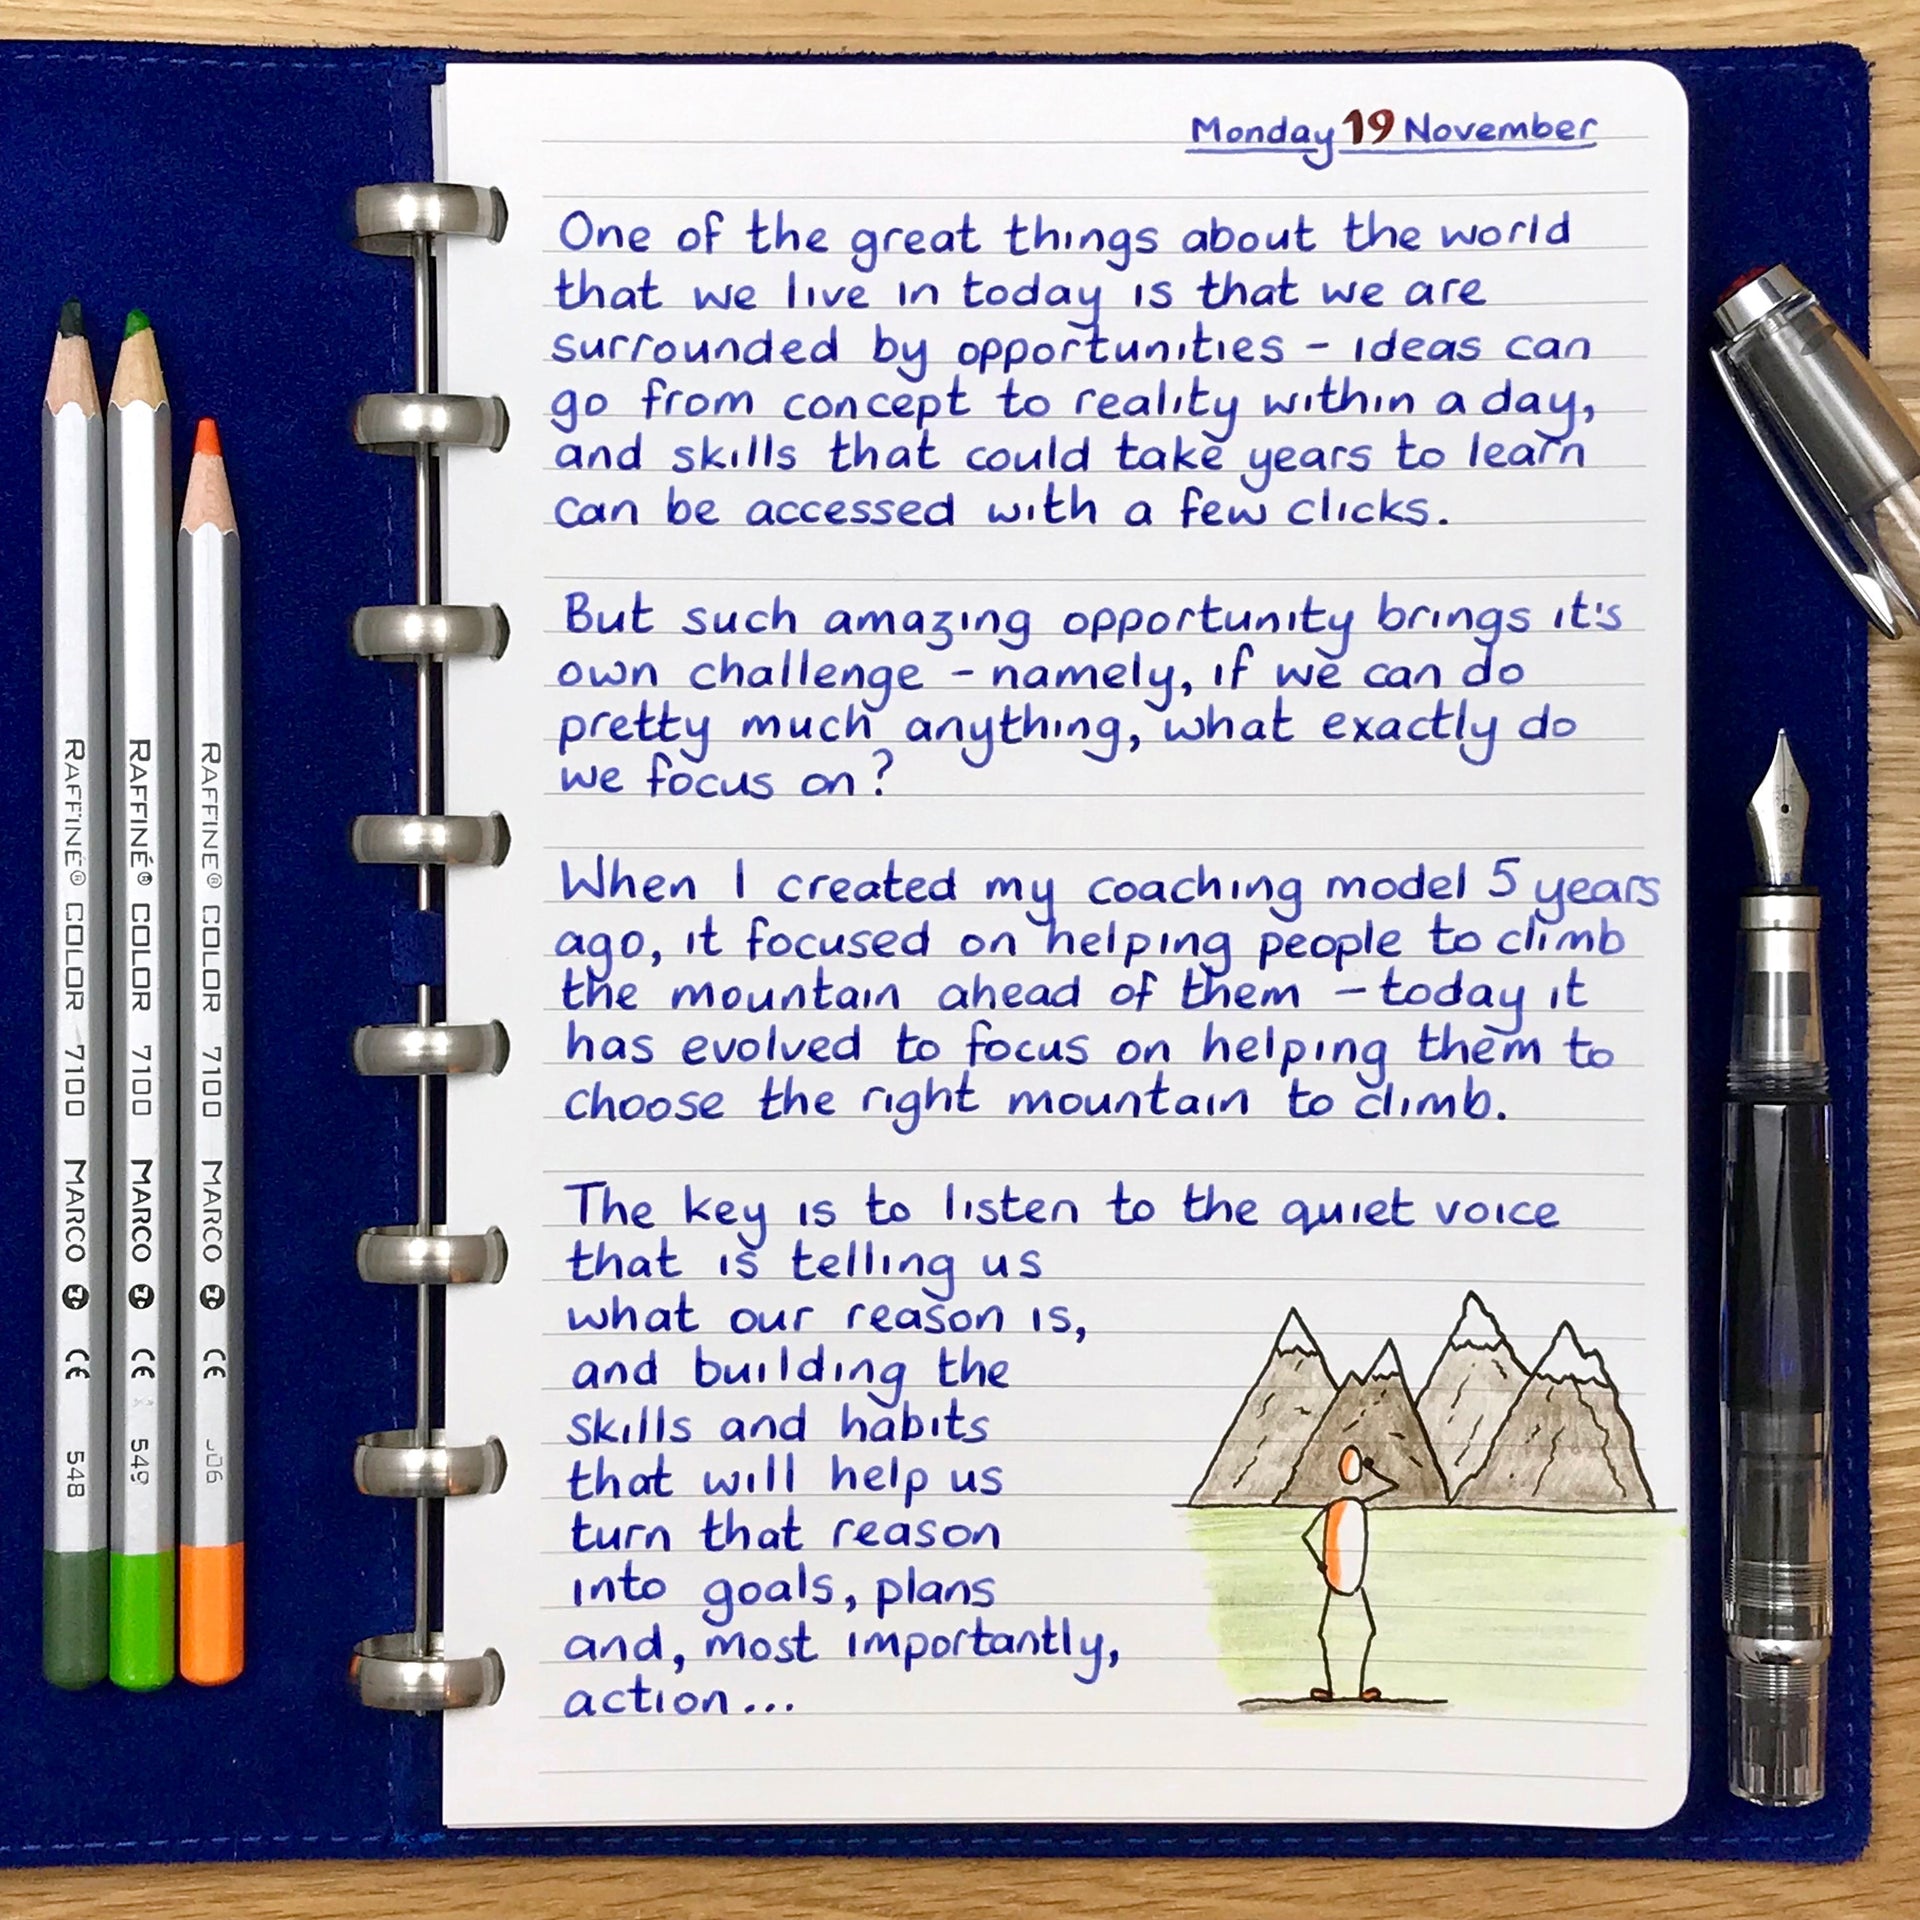 Monday 19 November
One of the great things about the world
that we live in today is that we are
surrounded by opportunities - ideas can
go from concept to reality within a day,
and skills that could take years to learn
can be accessed with a few clicks.
But such amazing opportunity brings it's
own challenge - namely, if we can do
pretty much anything, what exactly do
we focus on?
When I created my coaching model 5 years
ago, it focused on helping people to climb
the mountain ahead of them - today it
has evolved to focus on helping them to
choose the right mountain to climb.
The key is to listen to the quiet voice
that is telling us
what our reason is,
and building the
skills and habits
that will help us
turn that reason
into goals, plans
and, most importantly,
action...
RAFFINÉ® COLOR 7100 MARCO CE 548
RAFFINÉ® COLOR 7100 MARCO CE 549
RAFFINÉ® COLOR 7100 MARCO CE